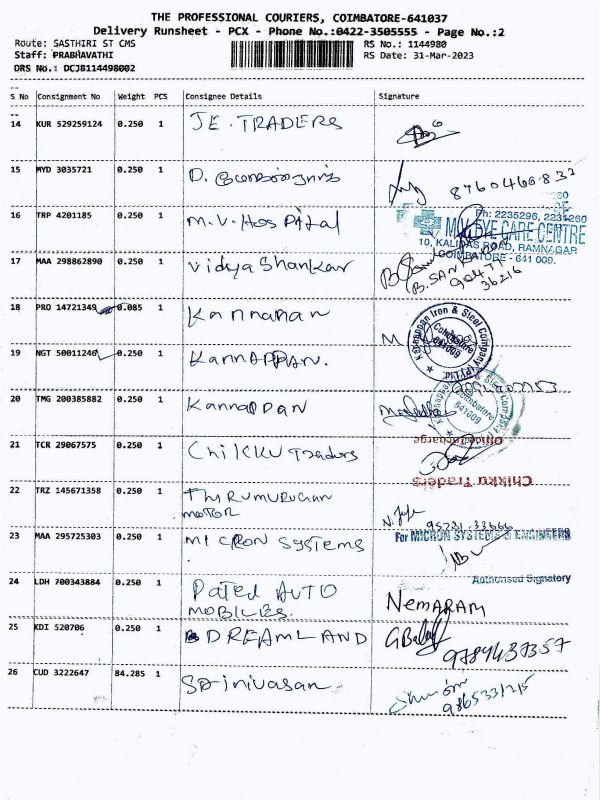 THE PROFESSIONAL COURIERS, COIMBATORE-641037
Delivery Runsheet - PCX - Phone No.:0422-3505555 - Page No.:2
Route: SASTHIRI ST CMS RS No.: 1144980
Staff: PRABHAVATHI RS Date: 31-Mar-2023
DRS No.: DCJB114498002
S No Consignment No Weight PCS Consignee Details Signature
14 KUR 529259124 0.250 1 JE. TRADERS
15 MYD 3035721 0.250 1 D.
8760466833
16 TRP 4201185 0.250 1 M.V. Hospital
Ph: 2235296, 2235260
EYE CARE CENTRE
10, KALIDAS ROAD, RAMNAGAR
COIMBATORE - 641 009.
17 MAA 298862890 0.250 1 Vidya Shankar
B. SANKARAN
90477
36216
18 PRO 14721349 0.085 1 Kannanan
Kannappan Iron & Steel Company (P) Ltd.
Coimbatore
641009
19 NGT 50011246 0.250 1 KANNAPPAN.
20 TMG 200385882 0.250 1 Kannappan
Coimbatore
641009
21 TCR 29067575 0.250 1 Chikku Traders
Chikku Traders
22 TRZ 145671358 0.250 1 THIRUMURUGAN
MOTOR
95781 33666
23 MAA 295725303 0.250 1 MICRON Systems
For MICRON SYSTEMS & ENGINEERS
Authorised Signatory
24 LDH 700343884 0.250 1 Patel AUTO
MOBILIES.
NEMARAM
25 KDI 520706 0.250 1 DREAMLAND
9789437357
26 CUD 3222647 84.285 1 Srinivasan
9865331215